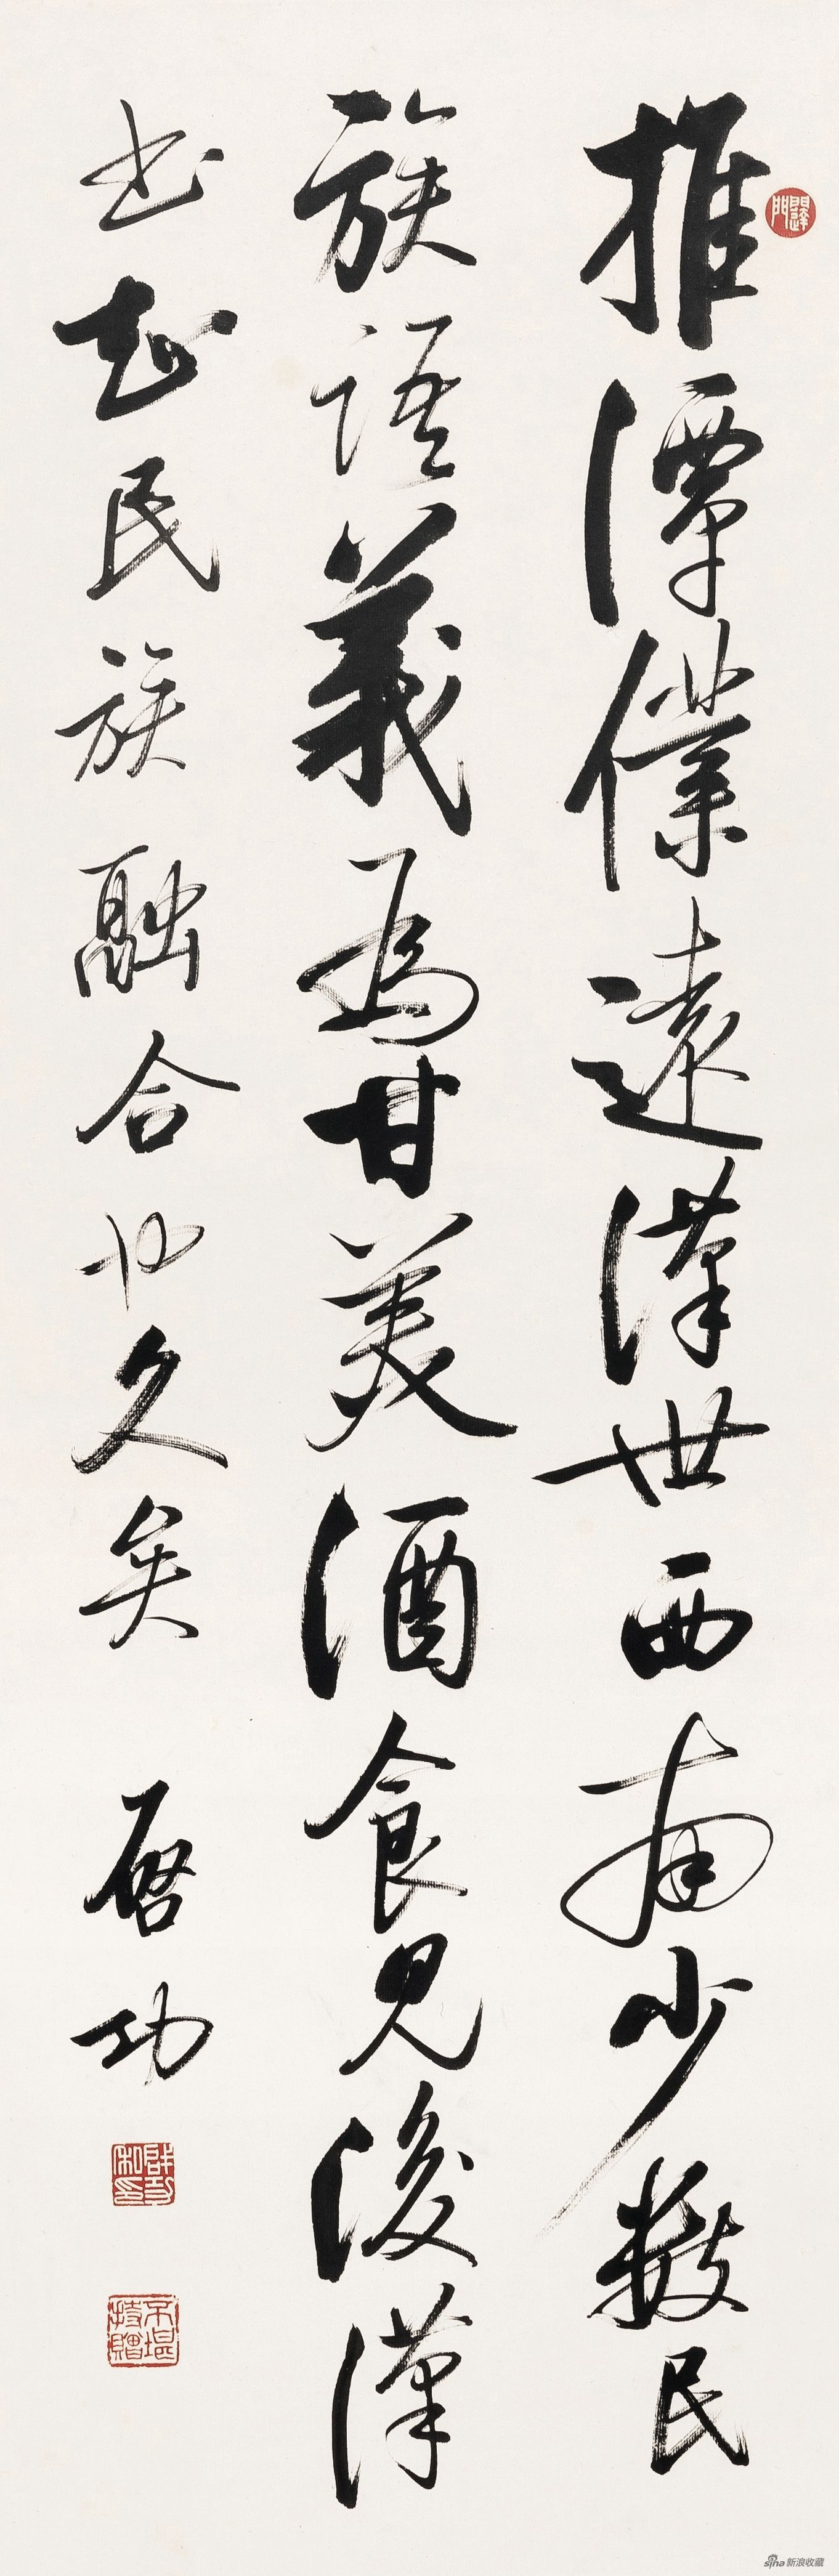 推潭僕遠漢世西南少數民
族語義為甘美酒食見後漢
书知民族融合也久矣
啓功
sina新浪收藏